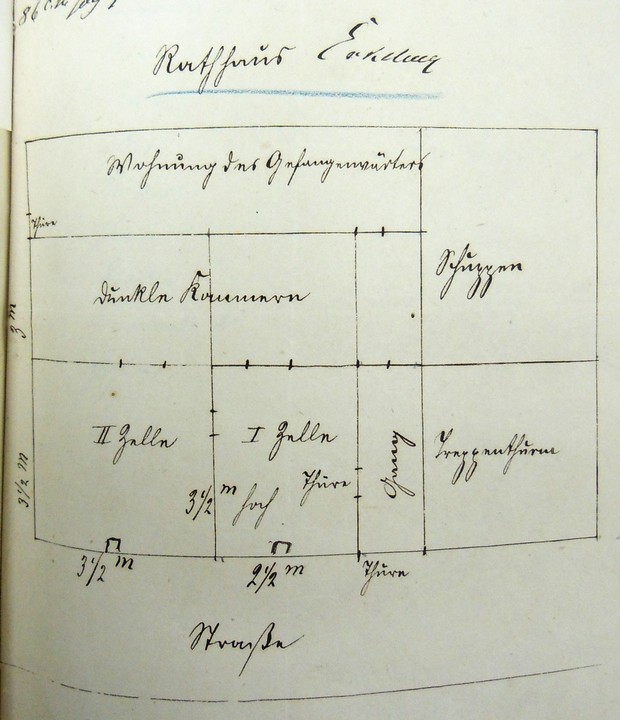 Rathhaus
Wohnung des Gefangenwärters
Thüre
Schuppen
Dunkle Kammern
3 m
II Zelle
I Zelle
Gang
Treppenthurm
3 1/2 m hoch
Thüre
3 1/2 m
3 1/2 m
2 1/2 m
Thüre
Straße